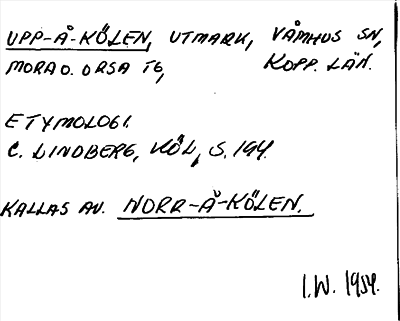 UPP-Å-KÖLEN, UTMARK, VÅMHUS SN,
MORA O. ORSA TG, KOPP. LÄN.
ETYMOLOGI.
C. LINDBERG, KÖL, S. 194.
KALLAS AV. NORR-Å-KÖLEN.
I.W. 1954.